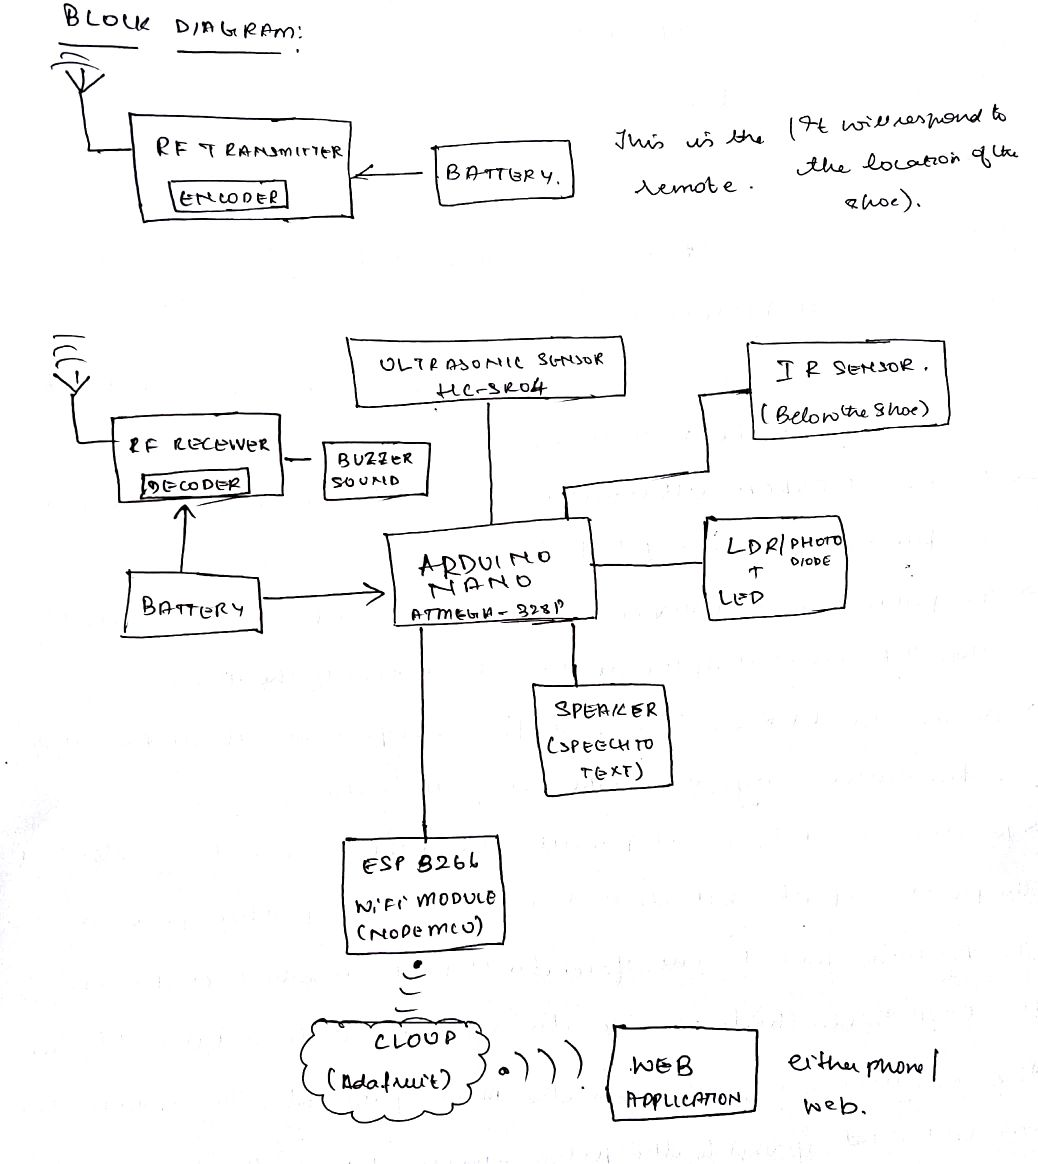 BLOCK DIAGRAM:
RF TRANSMITTER
ENCODER
BATTERY.
This is the
remote.
(It will respond to
the location of the
shoe).
ULTRASONIC SENSOR
HC-SR04
IR SENSOR.
(Below the shoe)
RF RECEIVER
DECODER
BUZZER
SOUND
ARDUINO
NANO
ATMEGA-328P
LDR/PHOTO
DIODE
+
LED
BATTERY
SPEAKER
(SPEECH TO
TEXT)
ESP 8266
WiFi MODULE
(NODEMCU)
CLOUD
(Adafruit)
WEB
APPLICATION
either phone/
web.